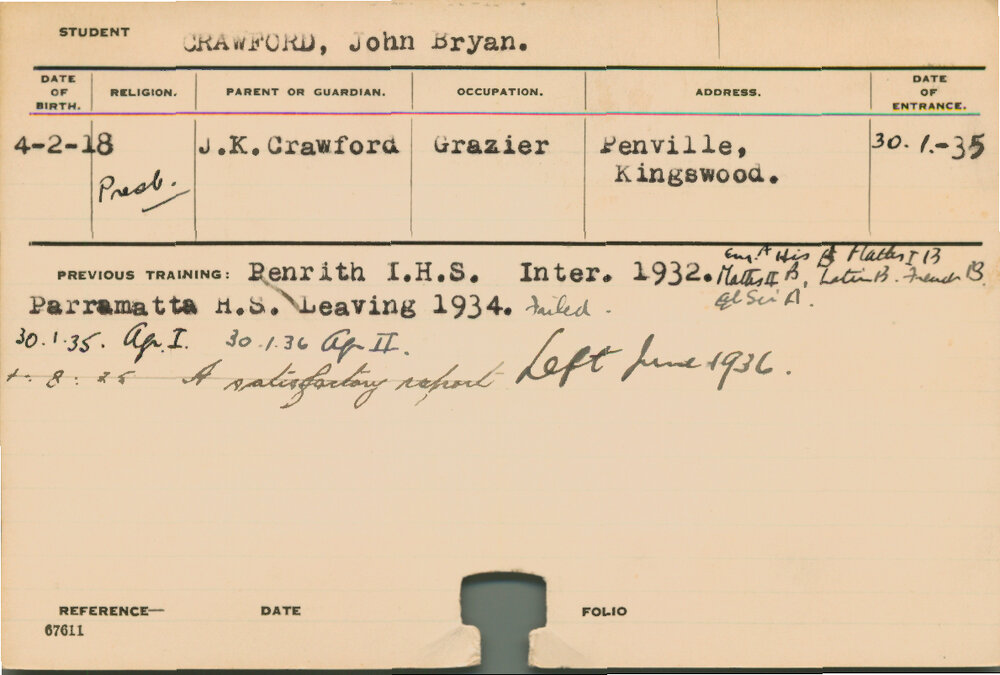 STUDENT CRAWFORD, John Bryan.
DATE OF BIRTH. RELIGION. PARENT OR GUARDIAN. OCCUPATION. ADDRESS. DATE OF ENTRANCE.
4-2-18 J.K.Crawford Grazier Penville, 30.1.-35
Presb. Kingswood.
PREVIOUS TRAINING: Penrith I.H.S. Inter. 1932. Eng. A His B Maths I B
Maths II B, Latin B. French B.
Parramatta H.S. Leaving 1934. Failed. El Sci A.
30.1.35. Agr. I. 30.1.36 Agr II.
8.35 A satisfactory report Left June 1936.
REFERENCE— DATE FOLIO
67611